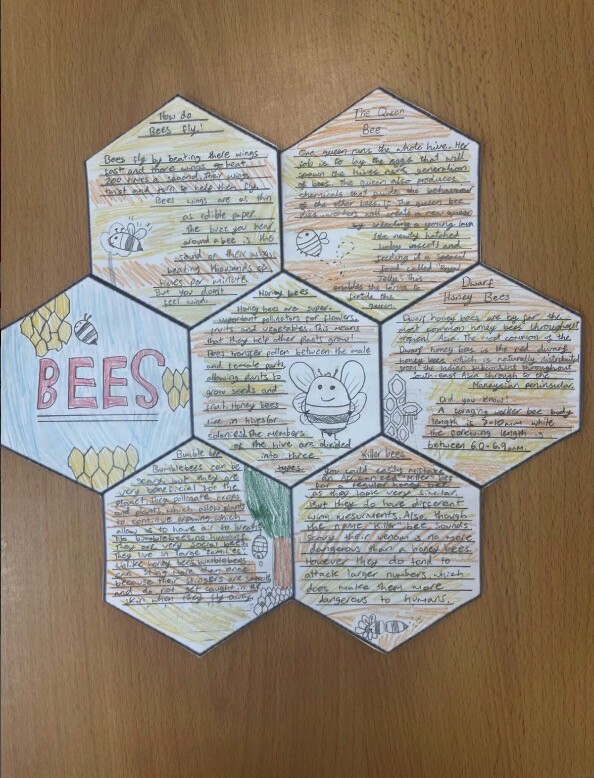 How do
Bees fly!
Bees fly by beating there wings
fast and there wings beat
200 times a second. Their wings
twist and turn to help them fly.
Bees wings are as thin
as edible paper.
The buzz you hear
around a bee is the
sound of their wings
beating thousands of
times per minute
But you don't
feel
The Queen
Bee
One queen runs the whole hive. Her
job is to lay the eggs that will
spawn the hives next generation
of bees. The queen also produces
chemicals that guide the behaviour
of the other bees. If the queen bee
dies workers will create a new queen
by selecting a young larva
(the newly hatched
baby insect) and
feeding it a special
food called "royal
Jelly" this
enables the larva to
fertile
queen.
BEES
Honey bees
Honey bees are super-
important pollinators for flowers,
fruits and vegetables. This means
that they help other plants grow!
Bees transfer pollen between the male
and female parts,
allowing plants to
grow seeds and
fruit. Honey bees
live in hives (or
colonies). The members
of the hive are divided
into three
types.
Dwarf
Honey Bees
Dwarf honey bees are by far the
most common honey bees throughout
tropical Asia. The most common of the
Dwarf honey bees is the red dwarf
honey bee, which is naturally distributed
from the Indian subcontinent throughout
south-east Asia through to the
peninsular.
Did you know!
A foraging worker bee body
length is 7-10mm while
the forewing length is
between 6.0-6.9mm.
Bumble bee
Bumblebees can be
scary but they are
very beneficial for the
planet like pollinate crops
and plants, which allow plants
to continue growing which
allow us to have air to breath
No bumblebees no humans!
They are very special bees
They live in large families!
Unlike honey bees, bumblebees
can sting more than once
because their stingers are smooth
and do not get caught in the
skin when they fly away
Killer bees
You could easily mistake
an African bee "killer" bee
for a regular honey bee
as they look very similar.
But they do have different
wing mesurments. Also, though
the name "killer" bee sounds
scary, their venom is no more
dangerous than a honey bees.
However they do tend to
attack larger numbers which
does make them more
dangerous to humans.